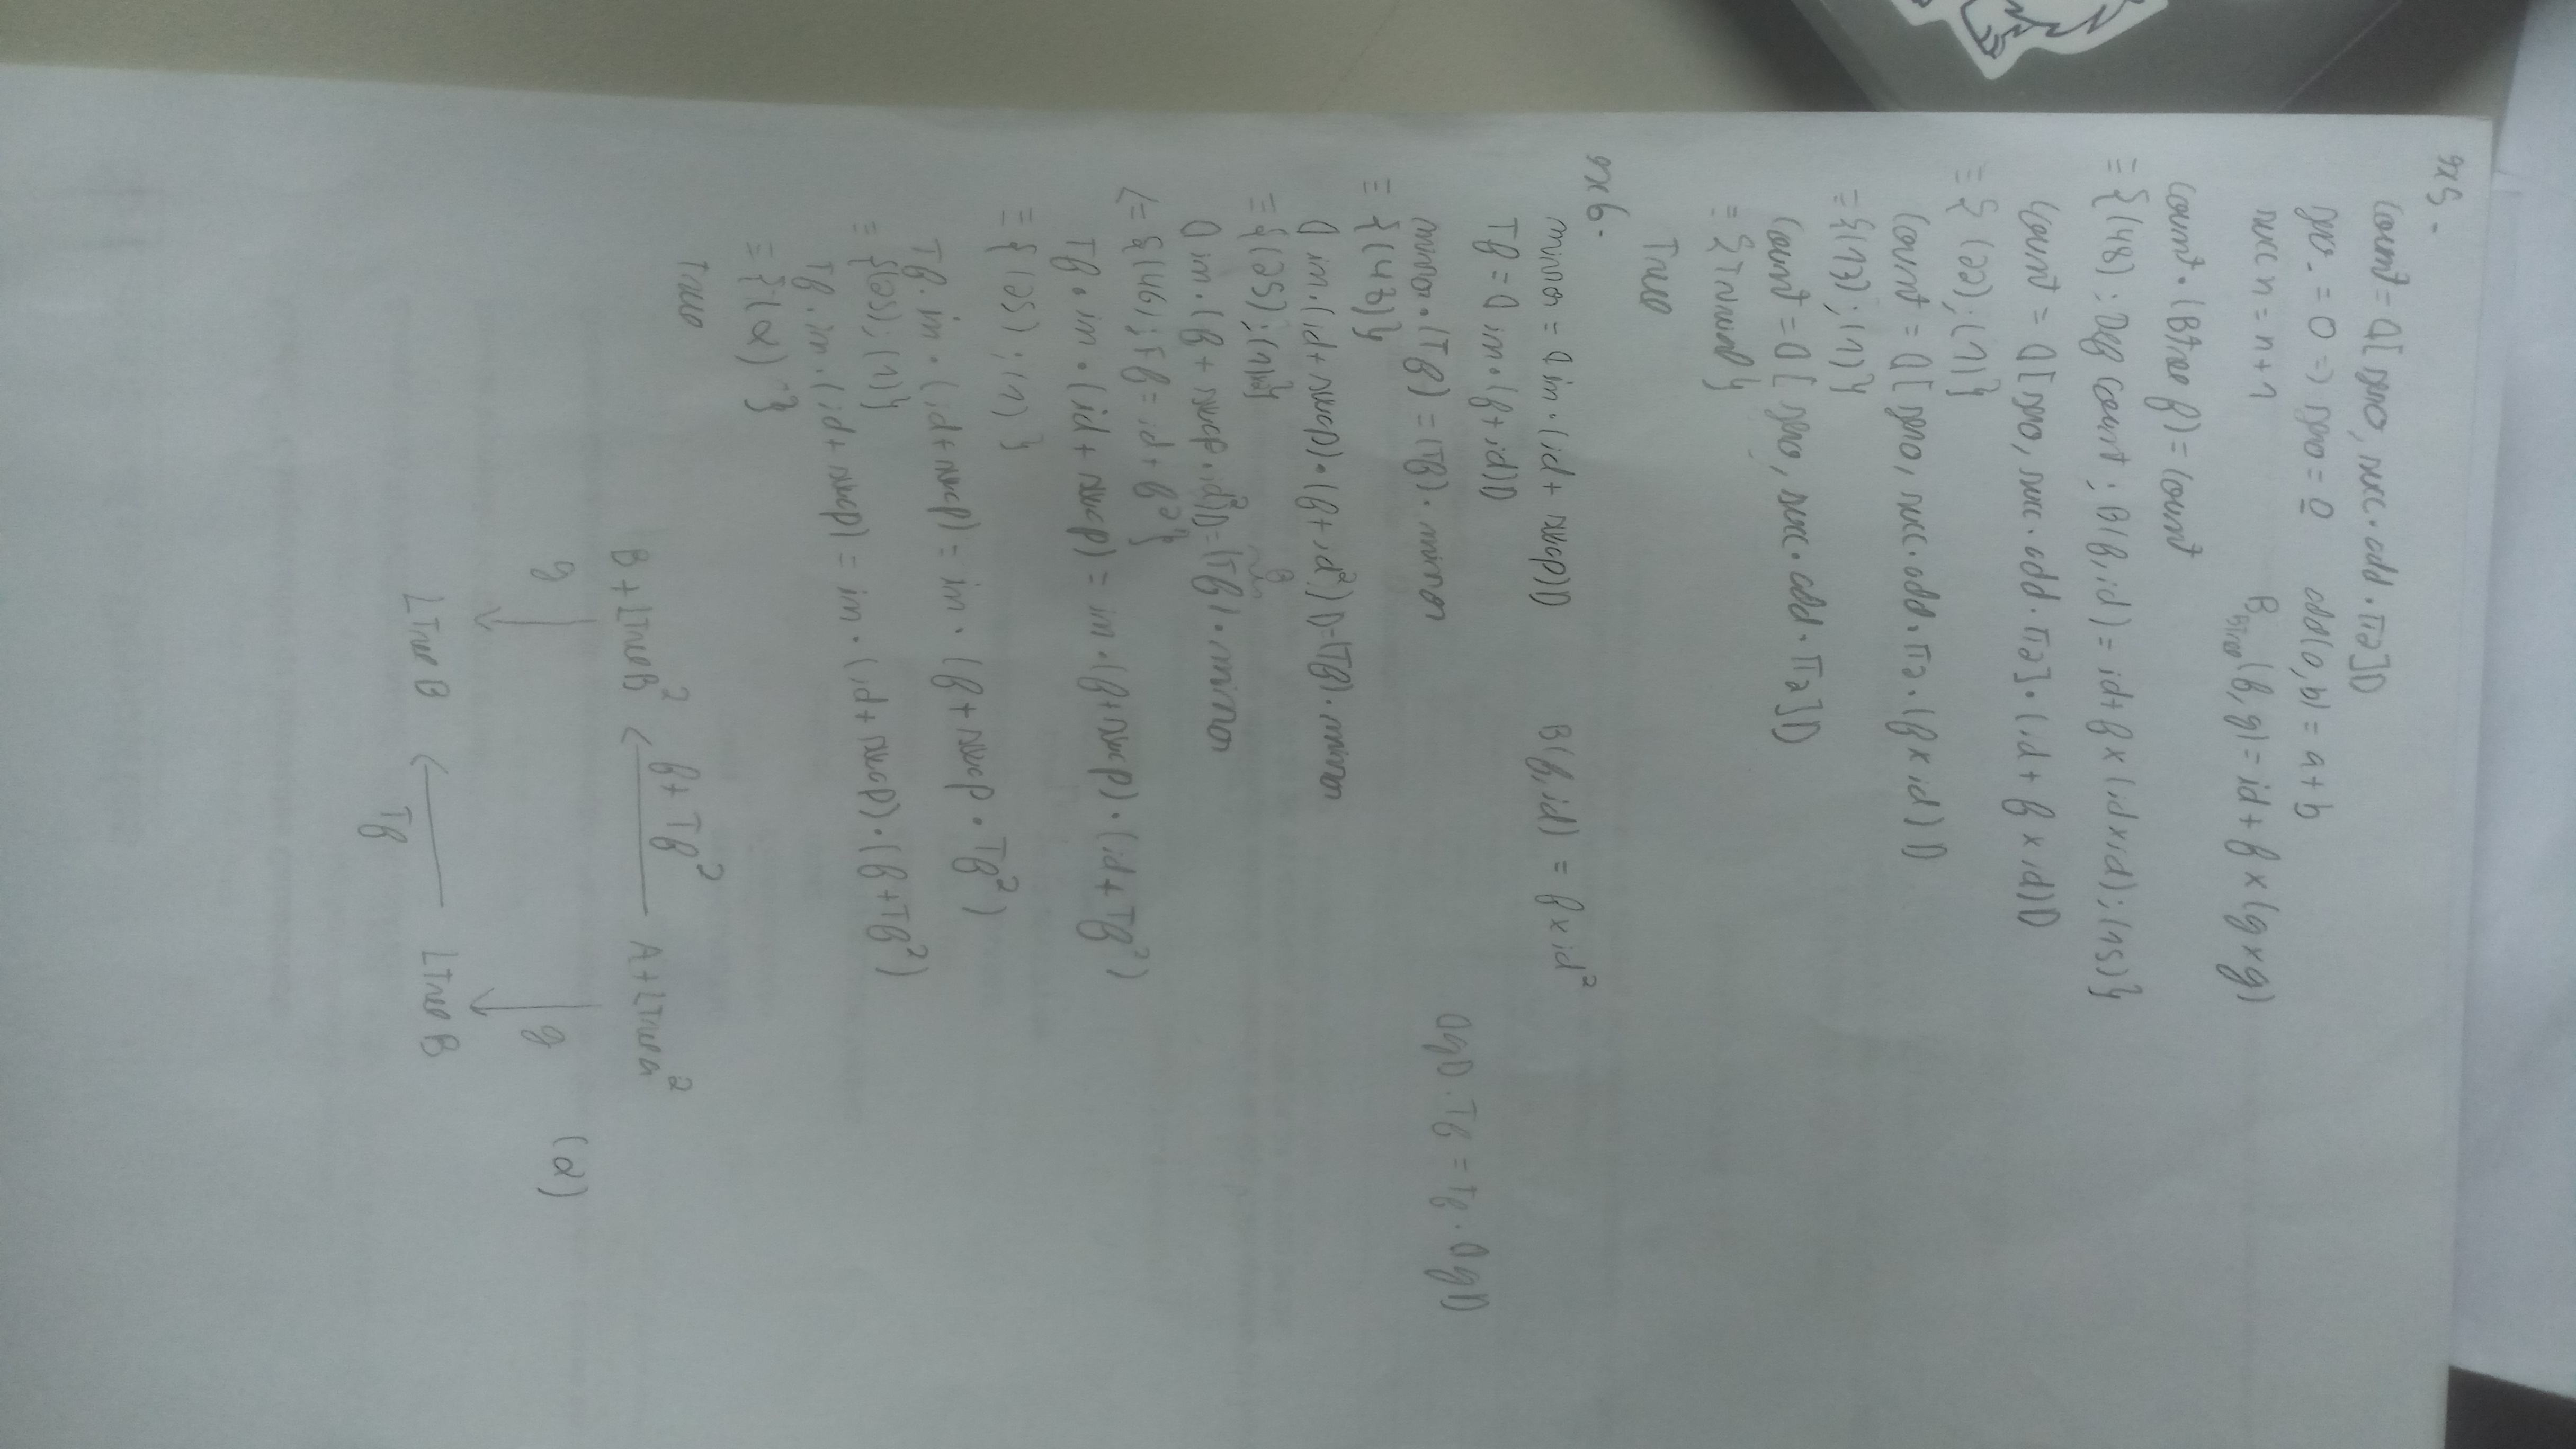 ex5 -
count = ⦇[zero, succ · add · π2]⦈
zero _ = 0 => zero = 0 add(a,b) = a+b
succ n = n+1 B BTree (f,g) = id + f × (g×g)
count · (BTree f) = count
≡ {(48); Def count; B(f,id) = id + f × (id×id); (15)}
count = ⦇[zero, succ · add · π2] · (id + f × id)⦈
≡ { (22); (1)}
count = ⦇[zero, succ · add · π2 · (f × id)⦈
≡ {(13); (1)}
count = ⦇[zero, succ · add · π2]⦈
≡ {Trivial}
True
ex6.
mirror = ⦇in · (id + swap)⦈ B(f,id) = f × id²
Tf = ⦇in · (f + id)⦈
mirror · (Tf) = (Tf) · mirror ⦇g⦈ · Tf = Tf · ⦇g⦈
≡ {(48)}
⦇in · (id + swap) · (f + id²)⦈ = (Tf) · mirror
≡ {(25); (1)²}
⦇in · (f + swap · id²)⦈ = (Tf) · mirror
<= {(46); Ff = id + f²}
Tf · in · (id + swap) = in · (f + swap) · (id + Tf²)
≡ { (25); (1) }
Tf · in · (id + swap) = in · (f + swap · Tf²)
≡ {(25); (1)}
Tf · in · (id + swap) = in · (id + swap) · (f + Tf²)
≡ {(α)}
True
B + LTree B² f + Tf² A + LTree a²
g g (α)
LTree B Tf LTree B